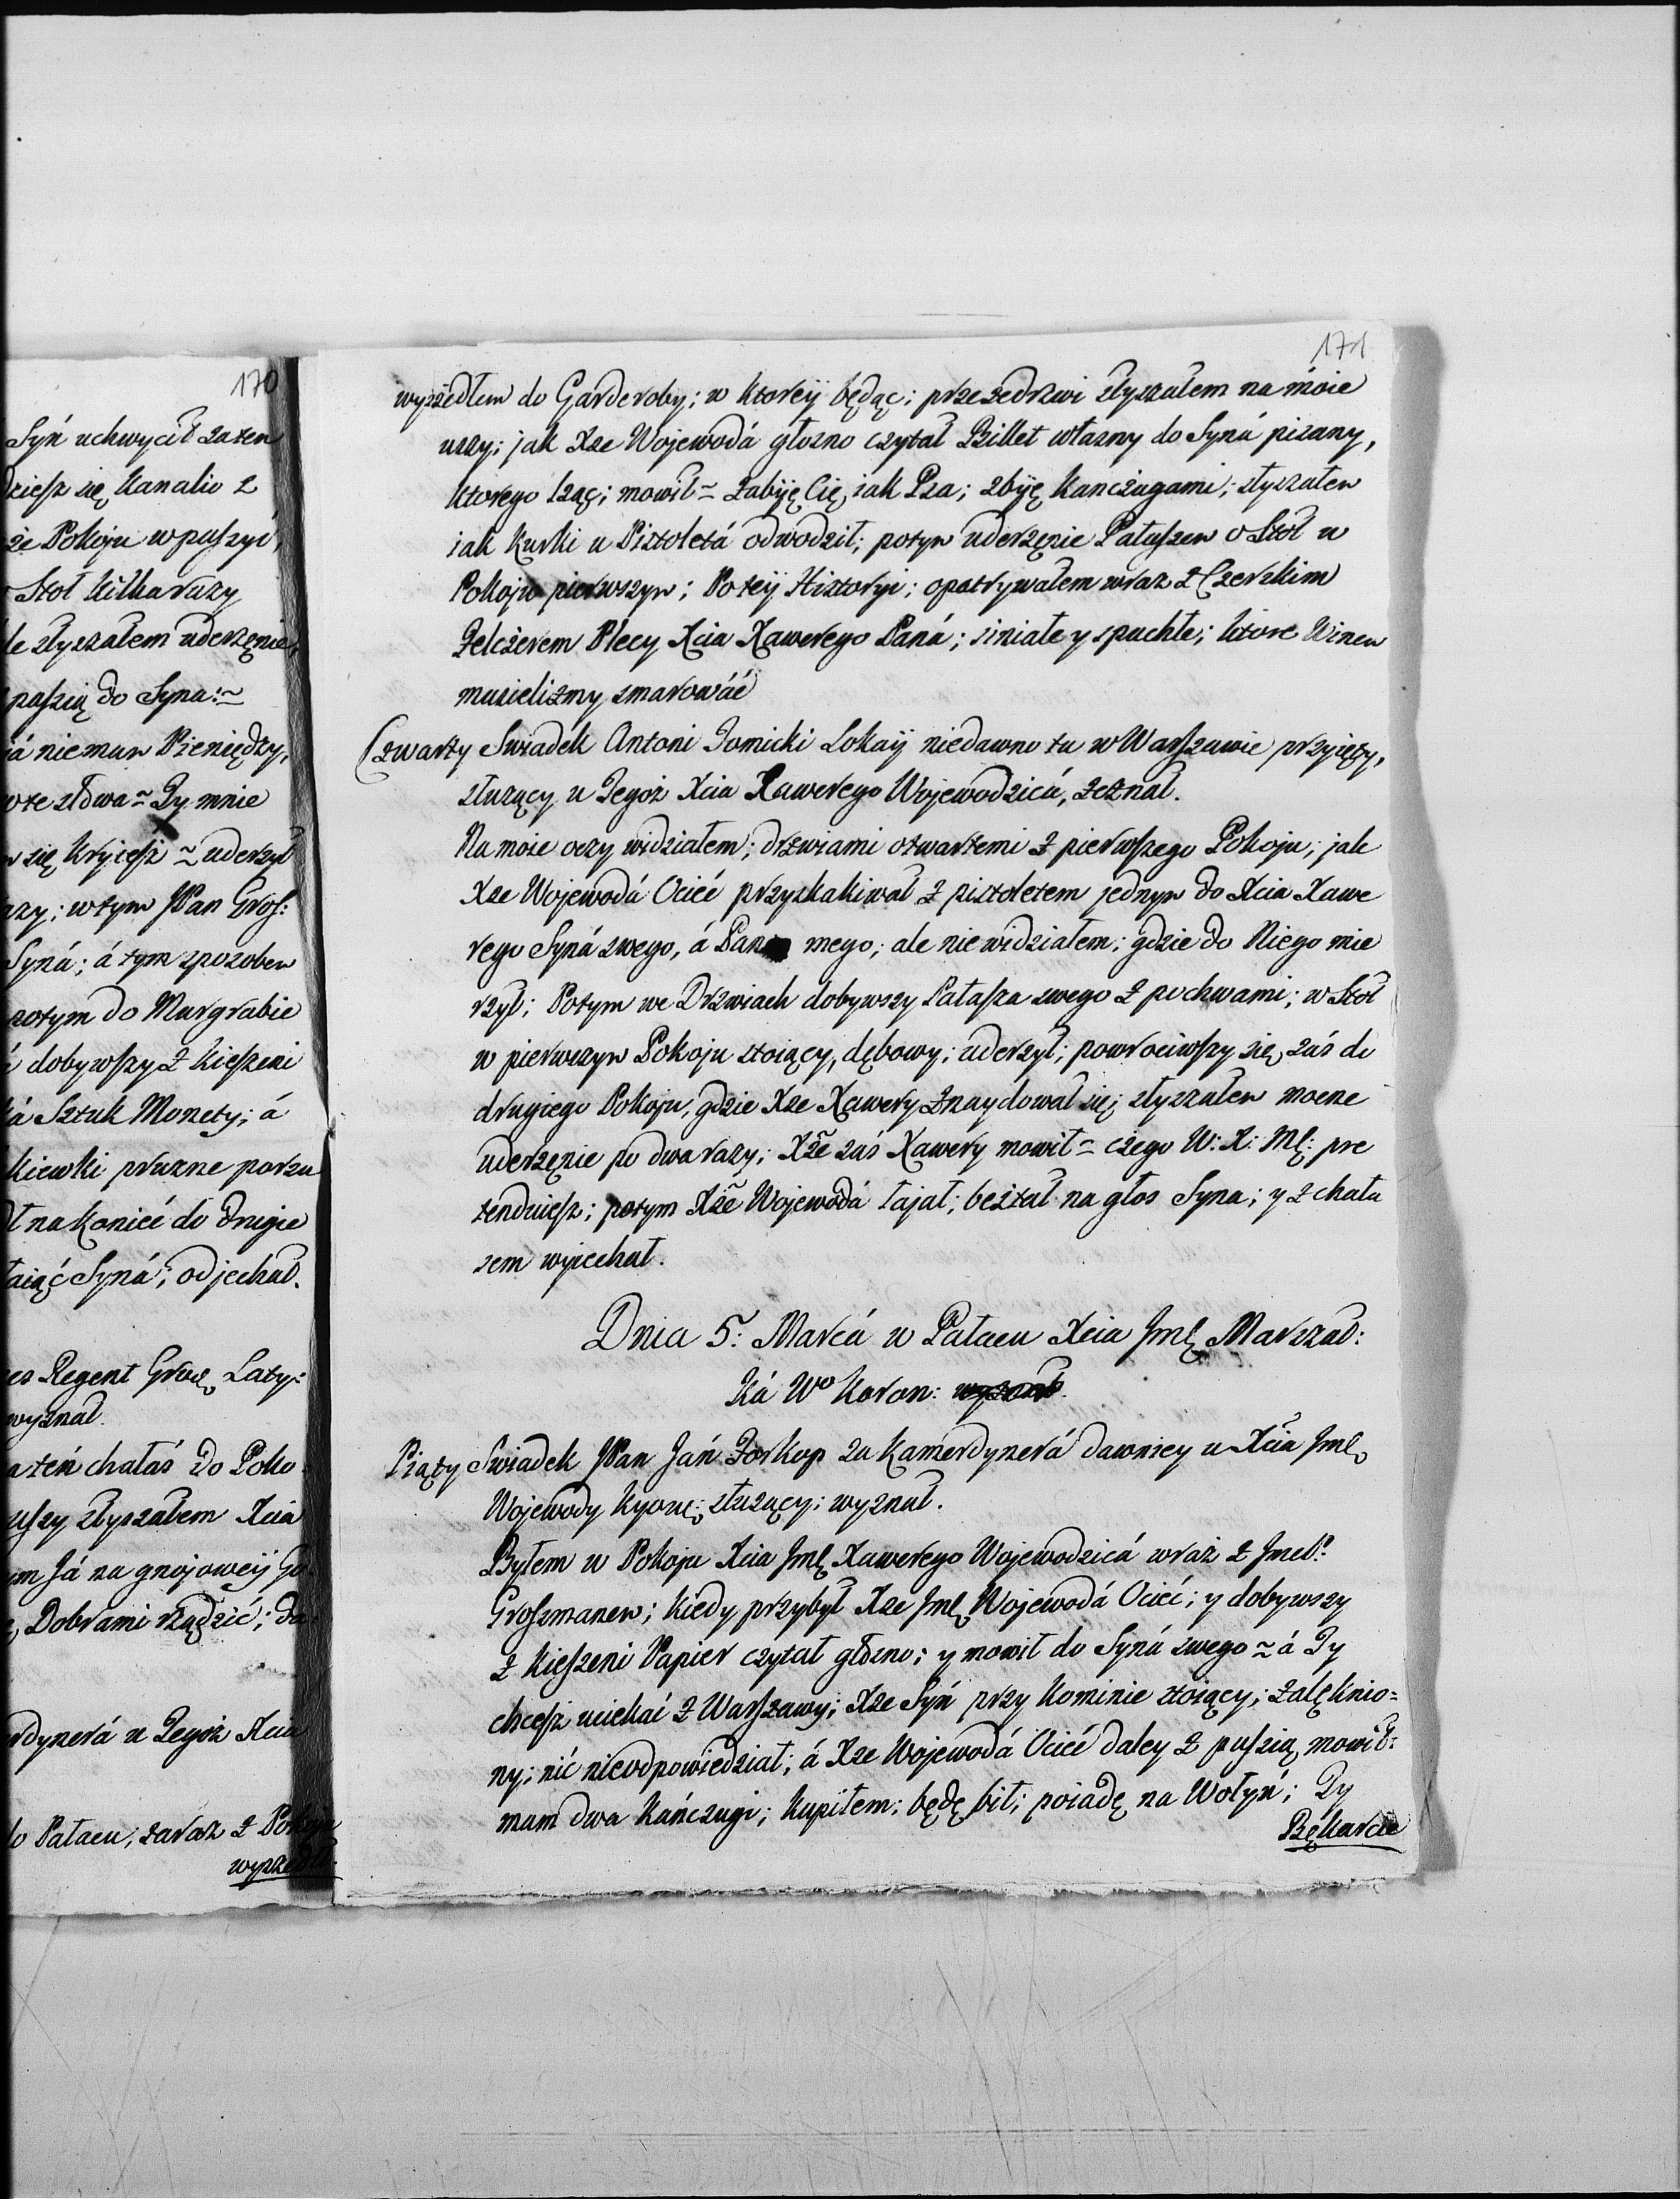 170
Syń uchwycił zaten
dziesz się Kanalio z
że Pokoju wpuszyć,
Stoł kilka razy
le słyszałem uderzęnie,
paszią do Syna:~
já niemam Pieniędzy,
wte słowa ~ Ty mnie
się kryiesz ~ uderzył
razy; wtym JPan Gros:
Syná; á tym sposobem
potym do Margrabie
dobywszy z kieszeni
ká Sztuk Monety; á
kiewki pruzne porzu
ł na konieć do drugie
łaiąć Syná; odjechał.
es Regent Grodz Laty:
wyznał.
a teń chałaś do Poko:
uszy słyszałem Xcia
em Já na gnojoweij Go
Dobrami rządzić; da
rdynerá u Tegoż Xcia
do Pałacu, zaraz z Pokoju
wyszedłe
171
wyszedłem do Garderoby; w ktoreij będąc; przezedrzwi słyszałem na moie
uszy; jak Xze Wojewodá głosno czytał Billet własny do Syná pisany,
ktorego łząc; mowił ~ zabiję Cię jak Psa; zbiję Kanczugami; słyszałem
iak kurki u Pistoletá odwodził; potym uderzęnie Pałaszem o Stoł w
Pokoju pierwszym; Poteij Historyi; opatrywałem wraz z Czerskim
Felczerem Plecy Xcia Xawerego Paná; siniałe y spuchłe; ktore Winem
musielizmy smarowáć
Czwarty Swiadek Antoni Tomicki Lokaij niedawno tu w Warszawie przyięty,
służący u Tegoż Xcia Xawerego Wojewodzicá, zeznał.
Na moie oczy widziałem; drzwiami otwartemi z pierwszego Pokoju; jak
Xze Wojewodá Ociéc przyskakiwał z pistoletem jednym do Xcia Xawe
rego Syná swego, á Pana mego; ale niewidziałem; gdzie do Niego mie
rzył; Potym we Drzwiach dobywszy Pałasza swego z pochwami; w Stoł
w pierwszym Pokoju stoiący, dębowy; uderzył; powrociwszy się zaś do
drugiego Pokoju, gdzie Xze Xawery znaydował się; słyszałem mocne
uderzęnie po dwa razy; Xże zaś Xawery mowił ~ czego W: X: Mć: pre
tenduiesz; potym Xże Wojewodá łajał; beształ na głos Syna; y z chała
sem wyiechał.
Dnia 5: Marcá w Pałacu Xcia Jmć Marszał:
ká Wo Koron:
Piąty Swiadek JPan Jáń Forkop za Kamerdynerá dawniey u Xcia Jmć
Wojewody Kyow: służący; wyznał.
Byłem w Pokoju Xcia Jmć Xawerego Wojewodzicá wraz z JmcP:
Groszmanem; kiedy przybył Xze Jmć Wojewodá Ociéć; y dobywszy
z kieszeni Papier czytał głosno; y mowił do Syná swego ~ á Ty
chcesz uciekać z Warszawy; Xze Syń przy kominie stoiący; zalęknio=
ny; nić nieodpowiedział; á Xze Wojewodá Ociéć daley z paszią mowił:
mam dwa Kańczugi; kupiłem; będę bił; poiadę na Wołyń; Ty
Bękarcie